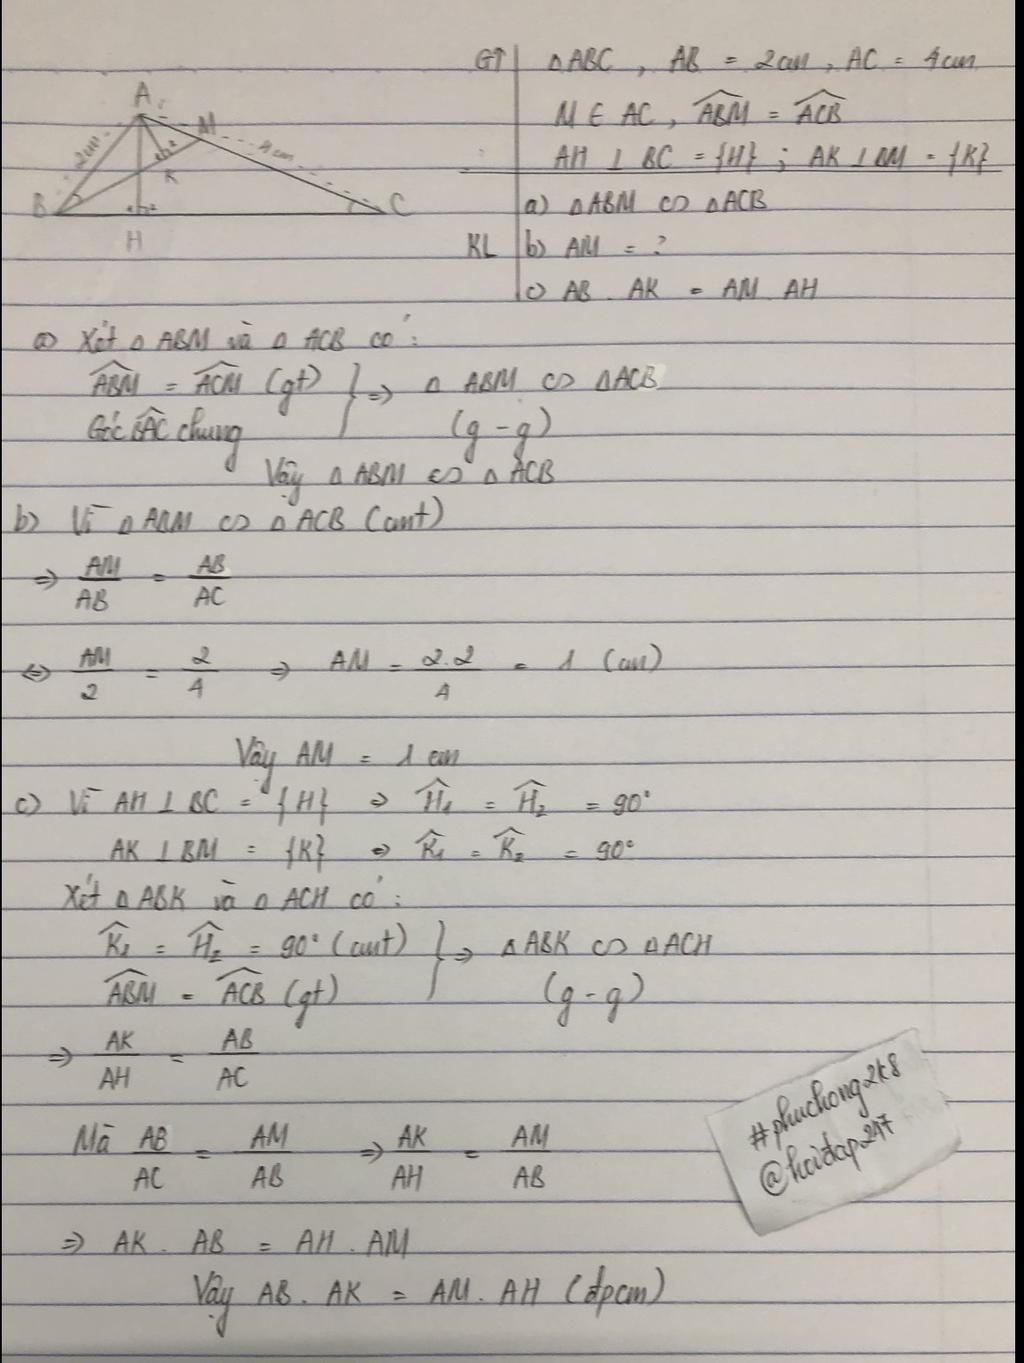 GT ΔABC, AB = 2cm, AC = 4cm
M ∈ AC, \widehat{ABM} = \widehat{ACB}
AH ⊥ BC = {H} ; AK ⊥ BM = {K}
a) ΔABM ∽ ΔACB
KL b) AM = ?
c) AB . AK = AM . AH
A
M
2cm
4cm
K
B
C
H
a) Xét Δ ABM và Δ ACB có:
\widehat{ABM} = \widehat{ACM} (gt) } ⇒ Δ ABM ∽ ΔACB
Góc \widehat{BAC} chung (g - g)
Vậy Δ ABM ∽ Δ ACB
b) Vì Δ ABM ∽ Δ ACB (cmt)
⇒ AM/AB = AB/AC
⇔ AM/2 = 2/4 ⇒ AM = 2.2/4 = 1 (cm)
Vậy AM = 1 cm
c) Vì AH ⊥ BC = {H} ⇒ Ĥ₁ = Ĥ₂ = 90°
AK ⊥ BM = {K} ⇒ K̂₁ = K̂₂ = 90°
Xét Δ ABK và Δ ACH có:
K̂₁ = Ĥ₂ = 90° (cmt) } ⇒ ΔABK ∽ ΔACH
\widehat{ABM} = \widehat{ACB} (gt) (g - g)
⇒ AK/AH = AB/AC
Mà AB/AC = AM/AB ⇒ AK/AH = AM/AB
⇒ AK . AB = AH . AM
Vậy AB . AK = AM . AH (đpcm)
#phuchong2k8
@hoidap247